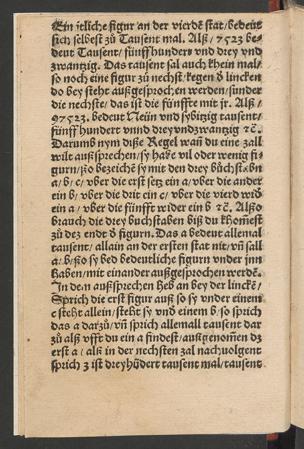 Ein ietliche figur an der vierdē stat/bedeut
sich selbest zů Tausent mal. Alß/7523 be-
deut Tausent/fünffhundert vnd drey vnd
zwantzig. Das tausent sal auch khein mal/
so noch eine figur zů nechst/kegen ð lincken
do bey steht außgesprochen werden/sunder
die nechste/das ist die fünffte mit jr. Alß/
97523. bedeut Neün vnd sybitzig tausent/
fünffhundert vnnd dreyvndzwantzig ꝛc̄.
Darumb nym diße Regel wañ du eine zall
wilt außsprechen/sy habe vil oder wenig fi-
gurn/ßo bezeichē sy mit den drey bůchstabn
a/b/c/vber die erst setz ein a/vber die ander
ein b/vber die drit ein c/vber die vierd wið
ein a/vber die fünfft wider ein b ꝛc̄. Alßo
brauch die drey buchstaben biß du khom̄est
zů dez endt ð figurn. Das a bedeut allemal
tausent/allain an der ersten stat nit/vñ sall
a/b/ßo sy bed bedeutliche figurn vnder jnn
haben/mit einander außgesprochen werdē.
In dem außsprechen heb an bey der linckē/
Sprich die erst figur auß so sy vnder einem
c steht allein/steht sy vnð einem b/so sprich
das a darzů/vñ sprich allemall tausent dar
zů alß offt du ein a findest/außgenom̄en dz
erst a/alß in der nechsten zal nachuolgent
sprich 3 ist dreyhūdert tausent mal/tausent